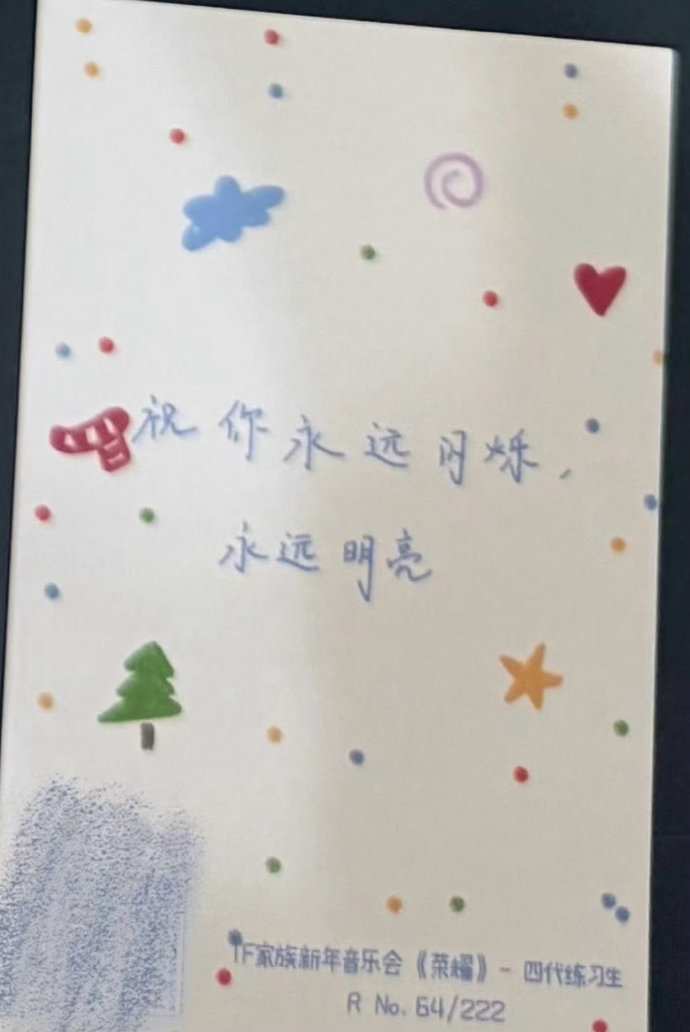 祝你永远闪烁，
永远明亮
TF家族新年音乐会《荣耀》- 四代练习生
R No. 64/222